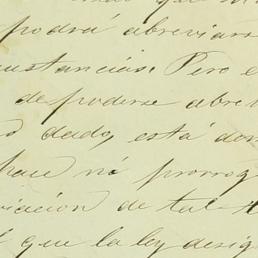 podrá abreviars
ustancias. Pero e
de poderse abre
o dado, está don
hace ni prorrog
viacion de tal
que la ley desig